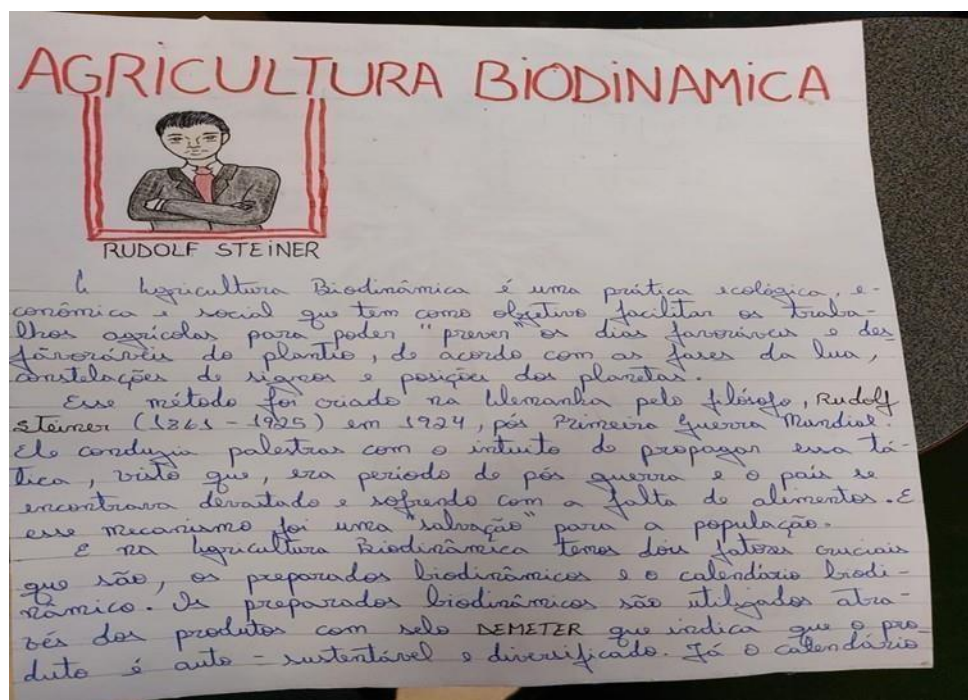 AGRICULTURA BIODINAMICA
RUDOLF STEINER
A Agricultura Biodinâmica é uma prática ecológica, e-
conômica e social que tem como objetivo facilitar os traba-
lhos agrícolas para poder "prever" os dias favoráveis e des
favoráveis do plantio, de acordo com as fases da lua,
constelações de signos e posições dos planetas.
Esse método foi criado na Alemanha pelo filósofo, Rudolf
Steiner (1861 - 1925) em 1924, pós Primeira Guerra Mundial.
Ele conduzia palestras com o intuito de propagar essa tá-
tica, visto que, era periodo de pós guerra e o país se
encontrava devastado e sofrendo com a falta de alimentos. E
esse mecanismo foi uma "salvação" para a população.
E na Agricultura Biodinâmica temos dois fatores cruciais
que são, os preparados biodinâmicos e o calendário biodi-
nâmico. Os preparados biodinâmicos são utilizados atra-
vés dos produtos com selo DEMETER que indica que o pro-
duto é auto-sustentável e diversificado. Já o calendário